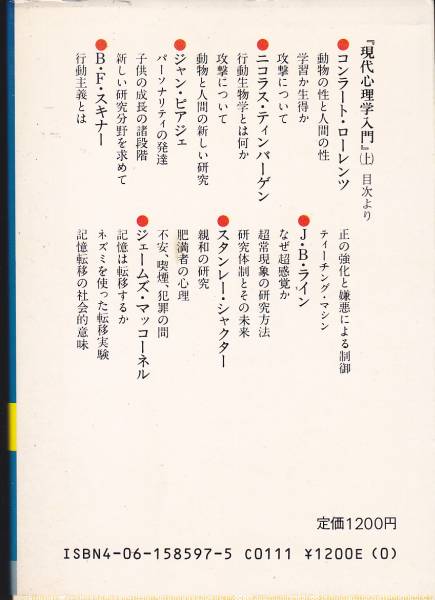 『現代心理学入門』(上) 目次より
●コンラート・ローレンツ
動物の性と人間の性
学習か生得か
攻撃について
●ニコラス・ティンバーゲン
行動生物学とは何か
攻撃について
動物と人間の新しい研究
●ジャン・ピアジェ
パーソナリティの発達
子供の成長の諸段階
新しい研究分野を求めて
●B・F・スキナー
行動主義とは
正の強化と嫌悪による制御
ティーチング・マシン
●J・B・ライン
なぜ超感覚か
超常現象の研究方法
研究体制とその未来
●スタンレー・シャクター
親和の研究
肥満者の心理
不安、喫煙、犯罪の問
●ジェームズ・マッコーネル
記憶は転移するか
ネズミを使った転移実験
記憶転移の社会的意味
定価1200円
ISBN4-06-158597-5 C0111 ¥1200E (0)